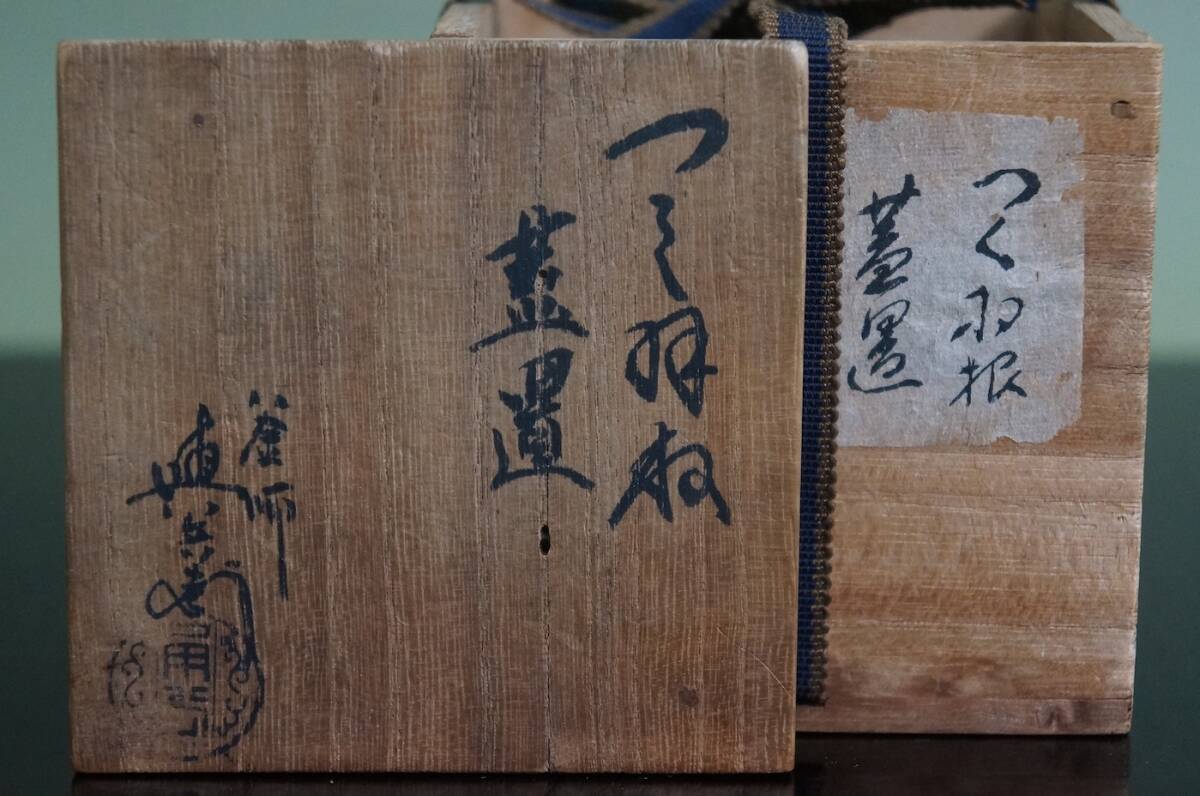 つく羽根
蓋置
釜師
つく羽根
蓋置